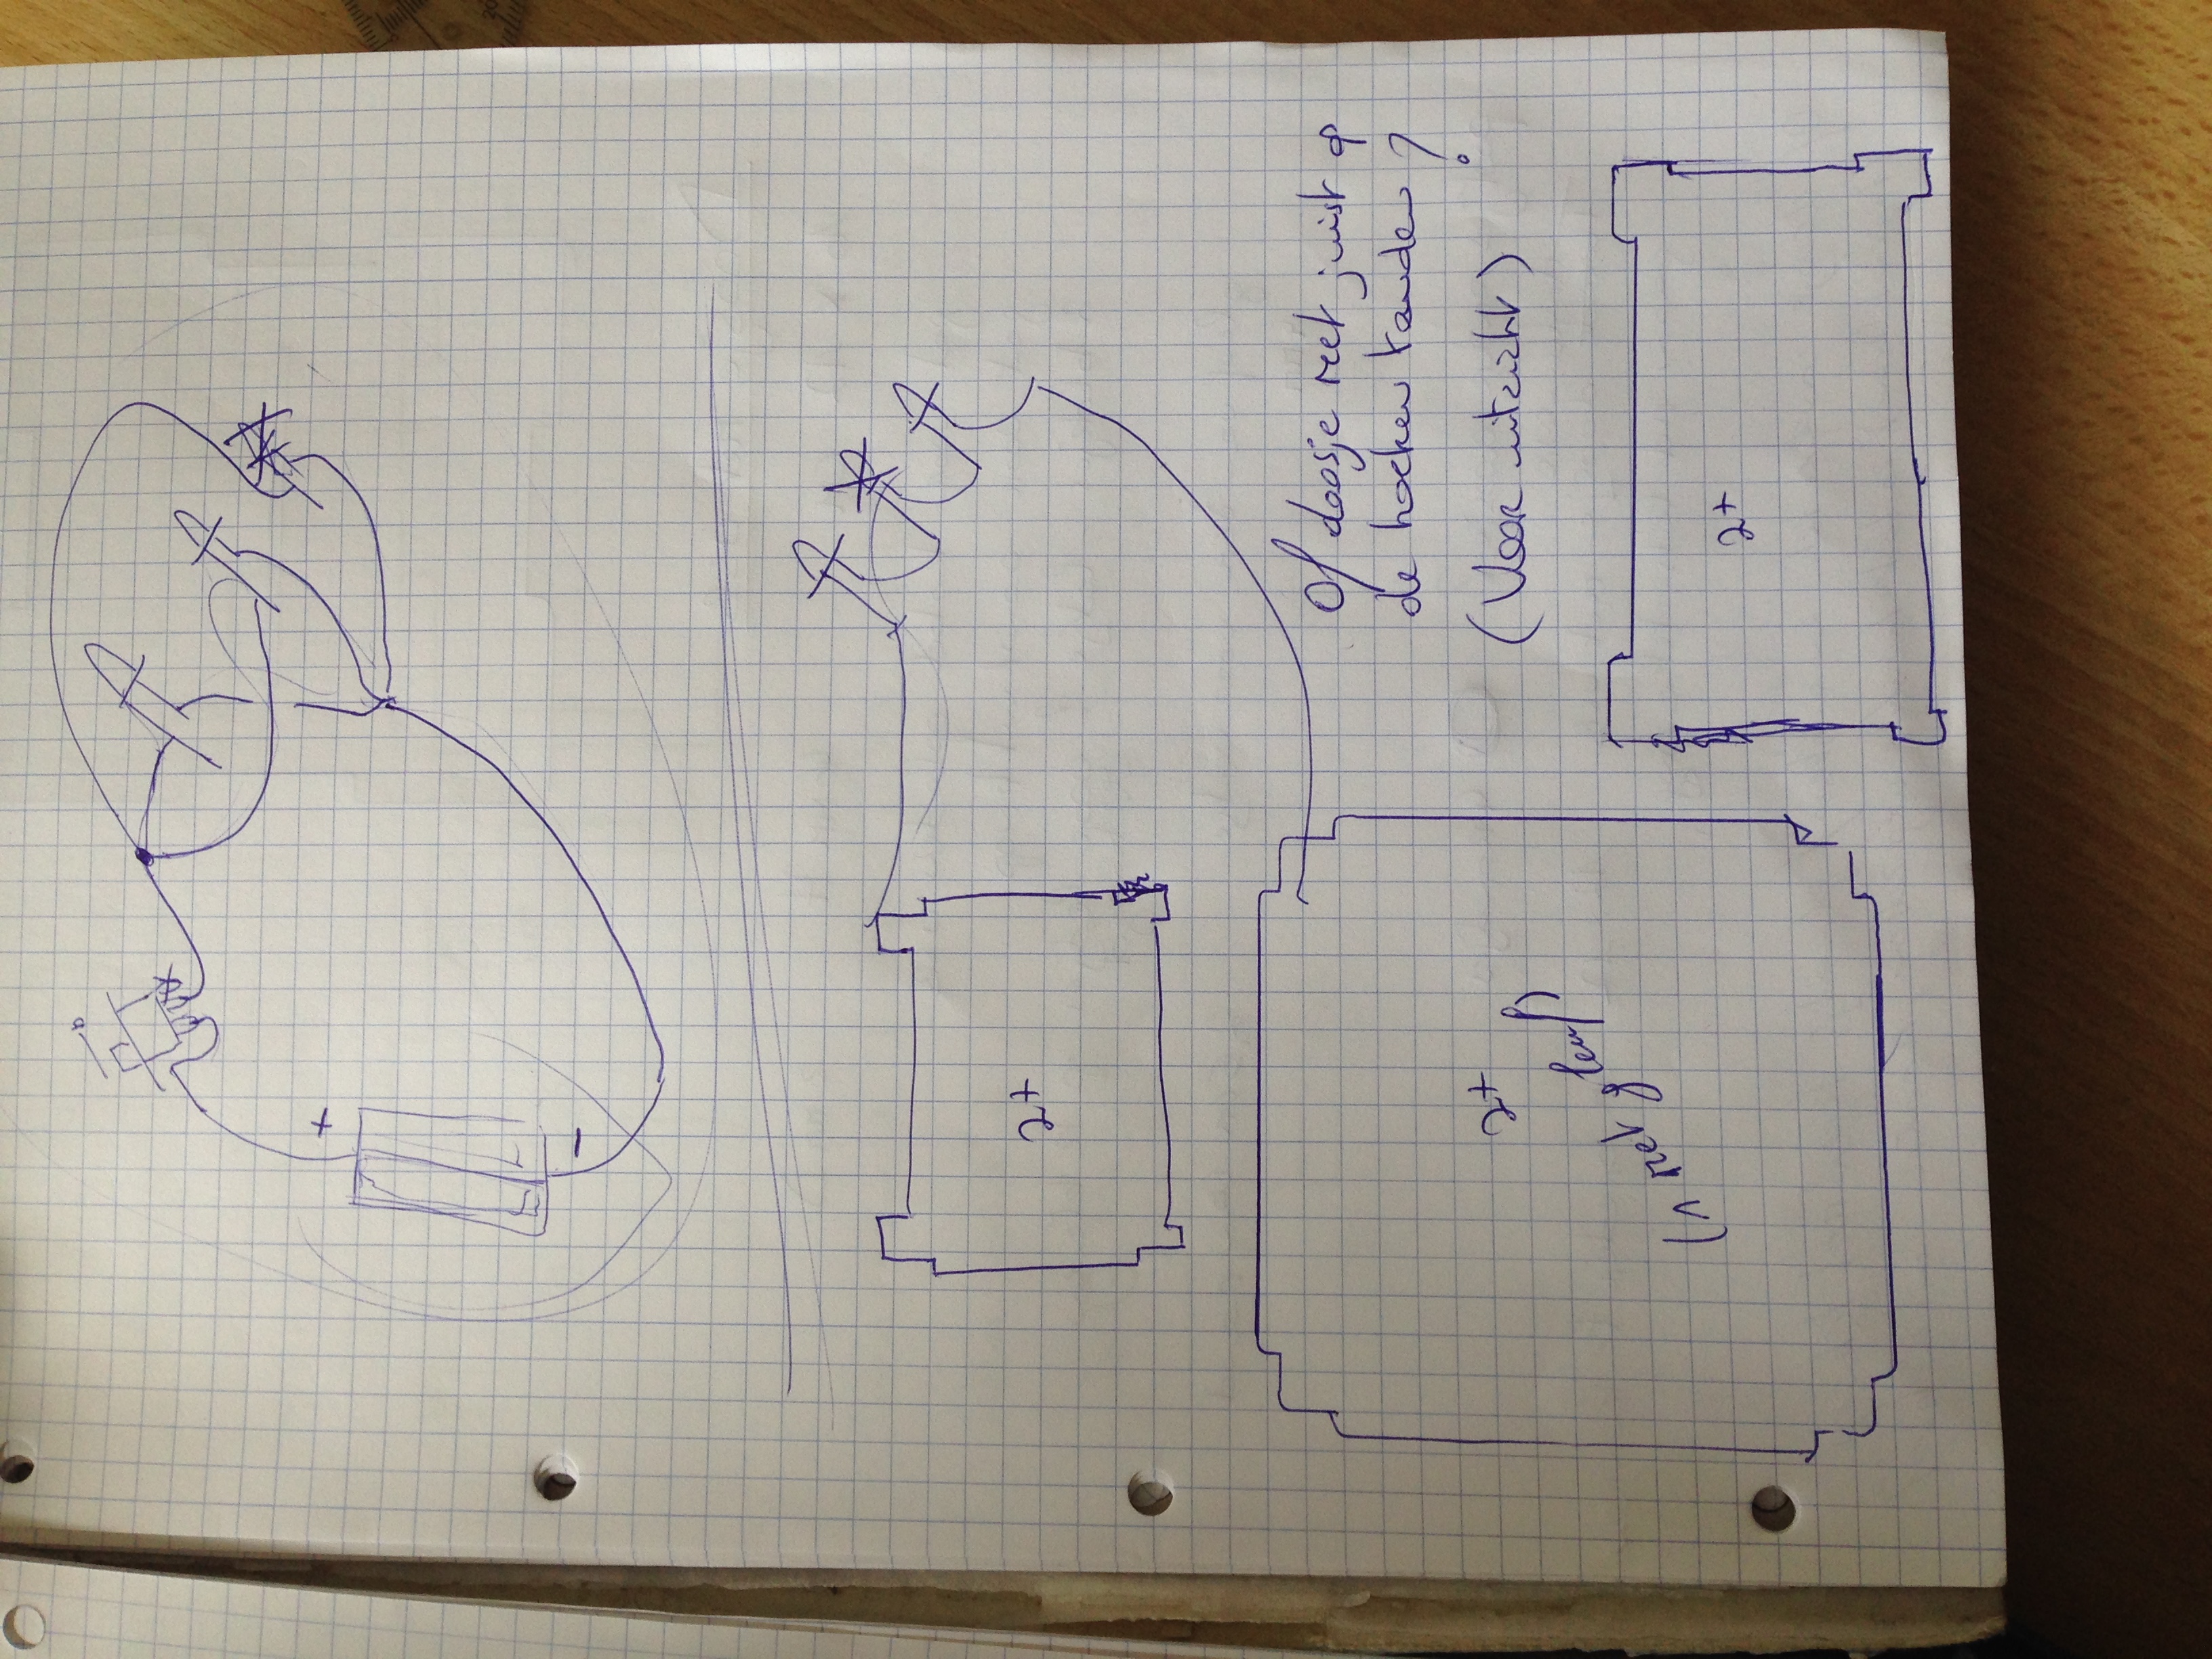 +
−
2x
2x
(1 met gleuf)
Of doosje met juist op
de hoeken tanden ?
(Voor uitzicht)
2x